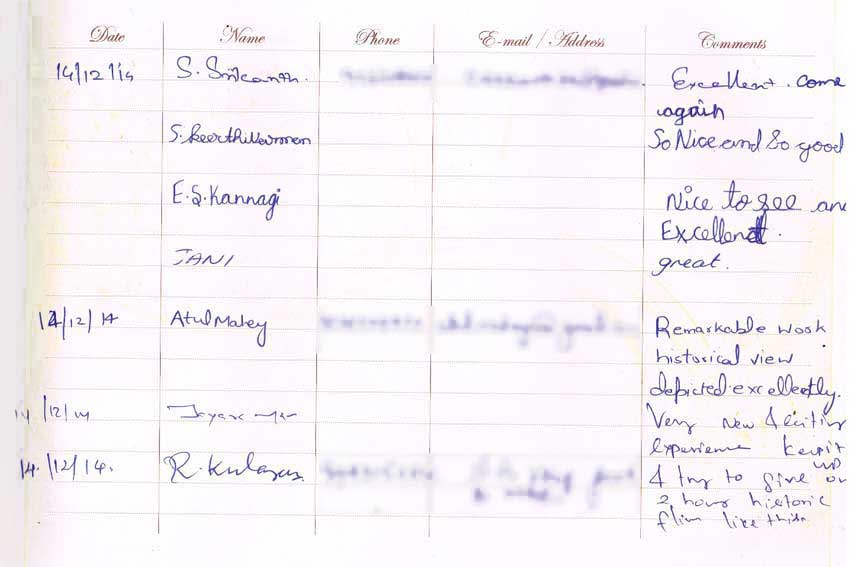 Date Name Phone E-mail / Address Comments
14/12/14 S. Srikanth. Excellent. come
again
S. Keerthivarman So Nice and So good
E.S. Kannagi Nice to see an
Excellent.
JANI great.
14/12/14 Atul Maley Remarkable work
historical view
depicted excellently.
14/12/14 Very New
experience keep it
up
14/12/14. R. & try to give
2 hour historic
flim like this.